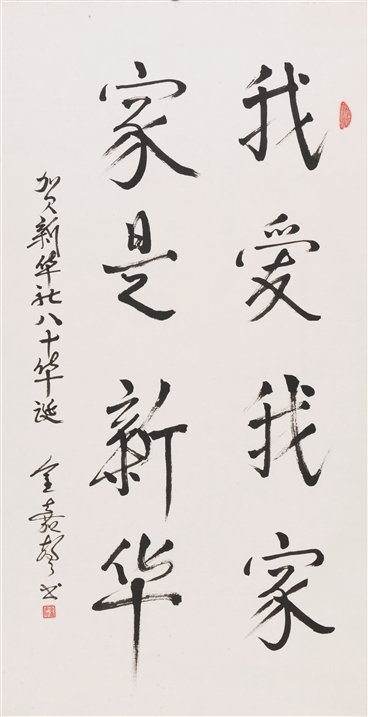 我爱我家
家是新华
贺新华社八十华诞
金嘉书